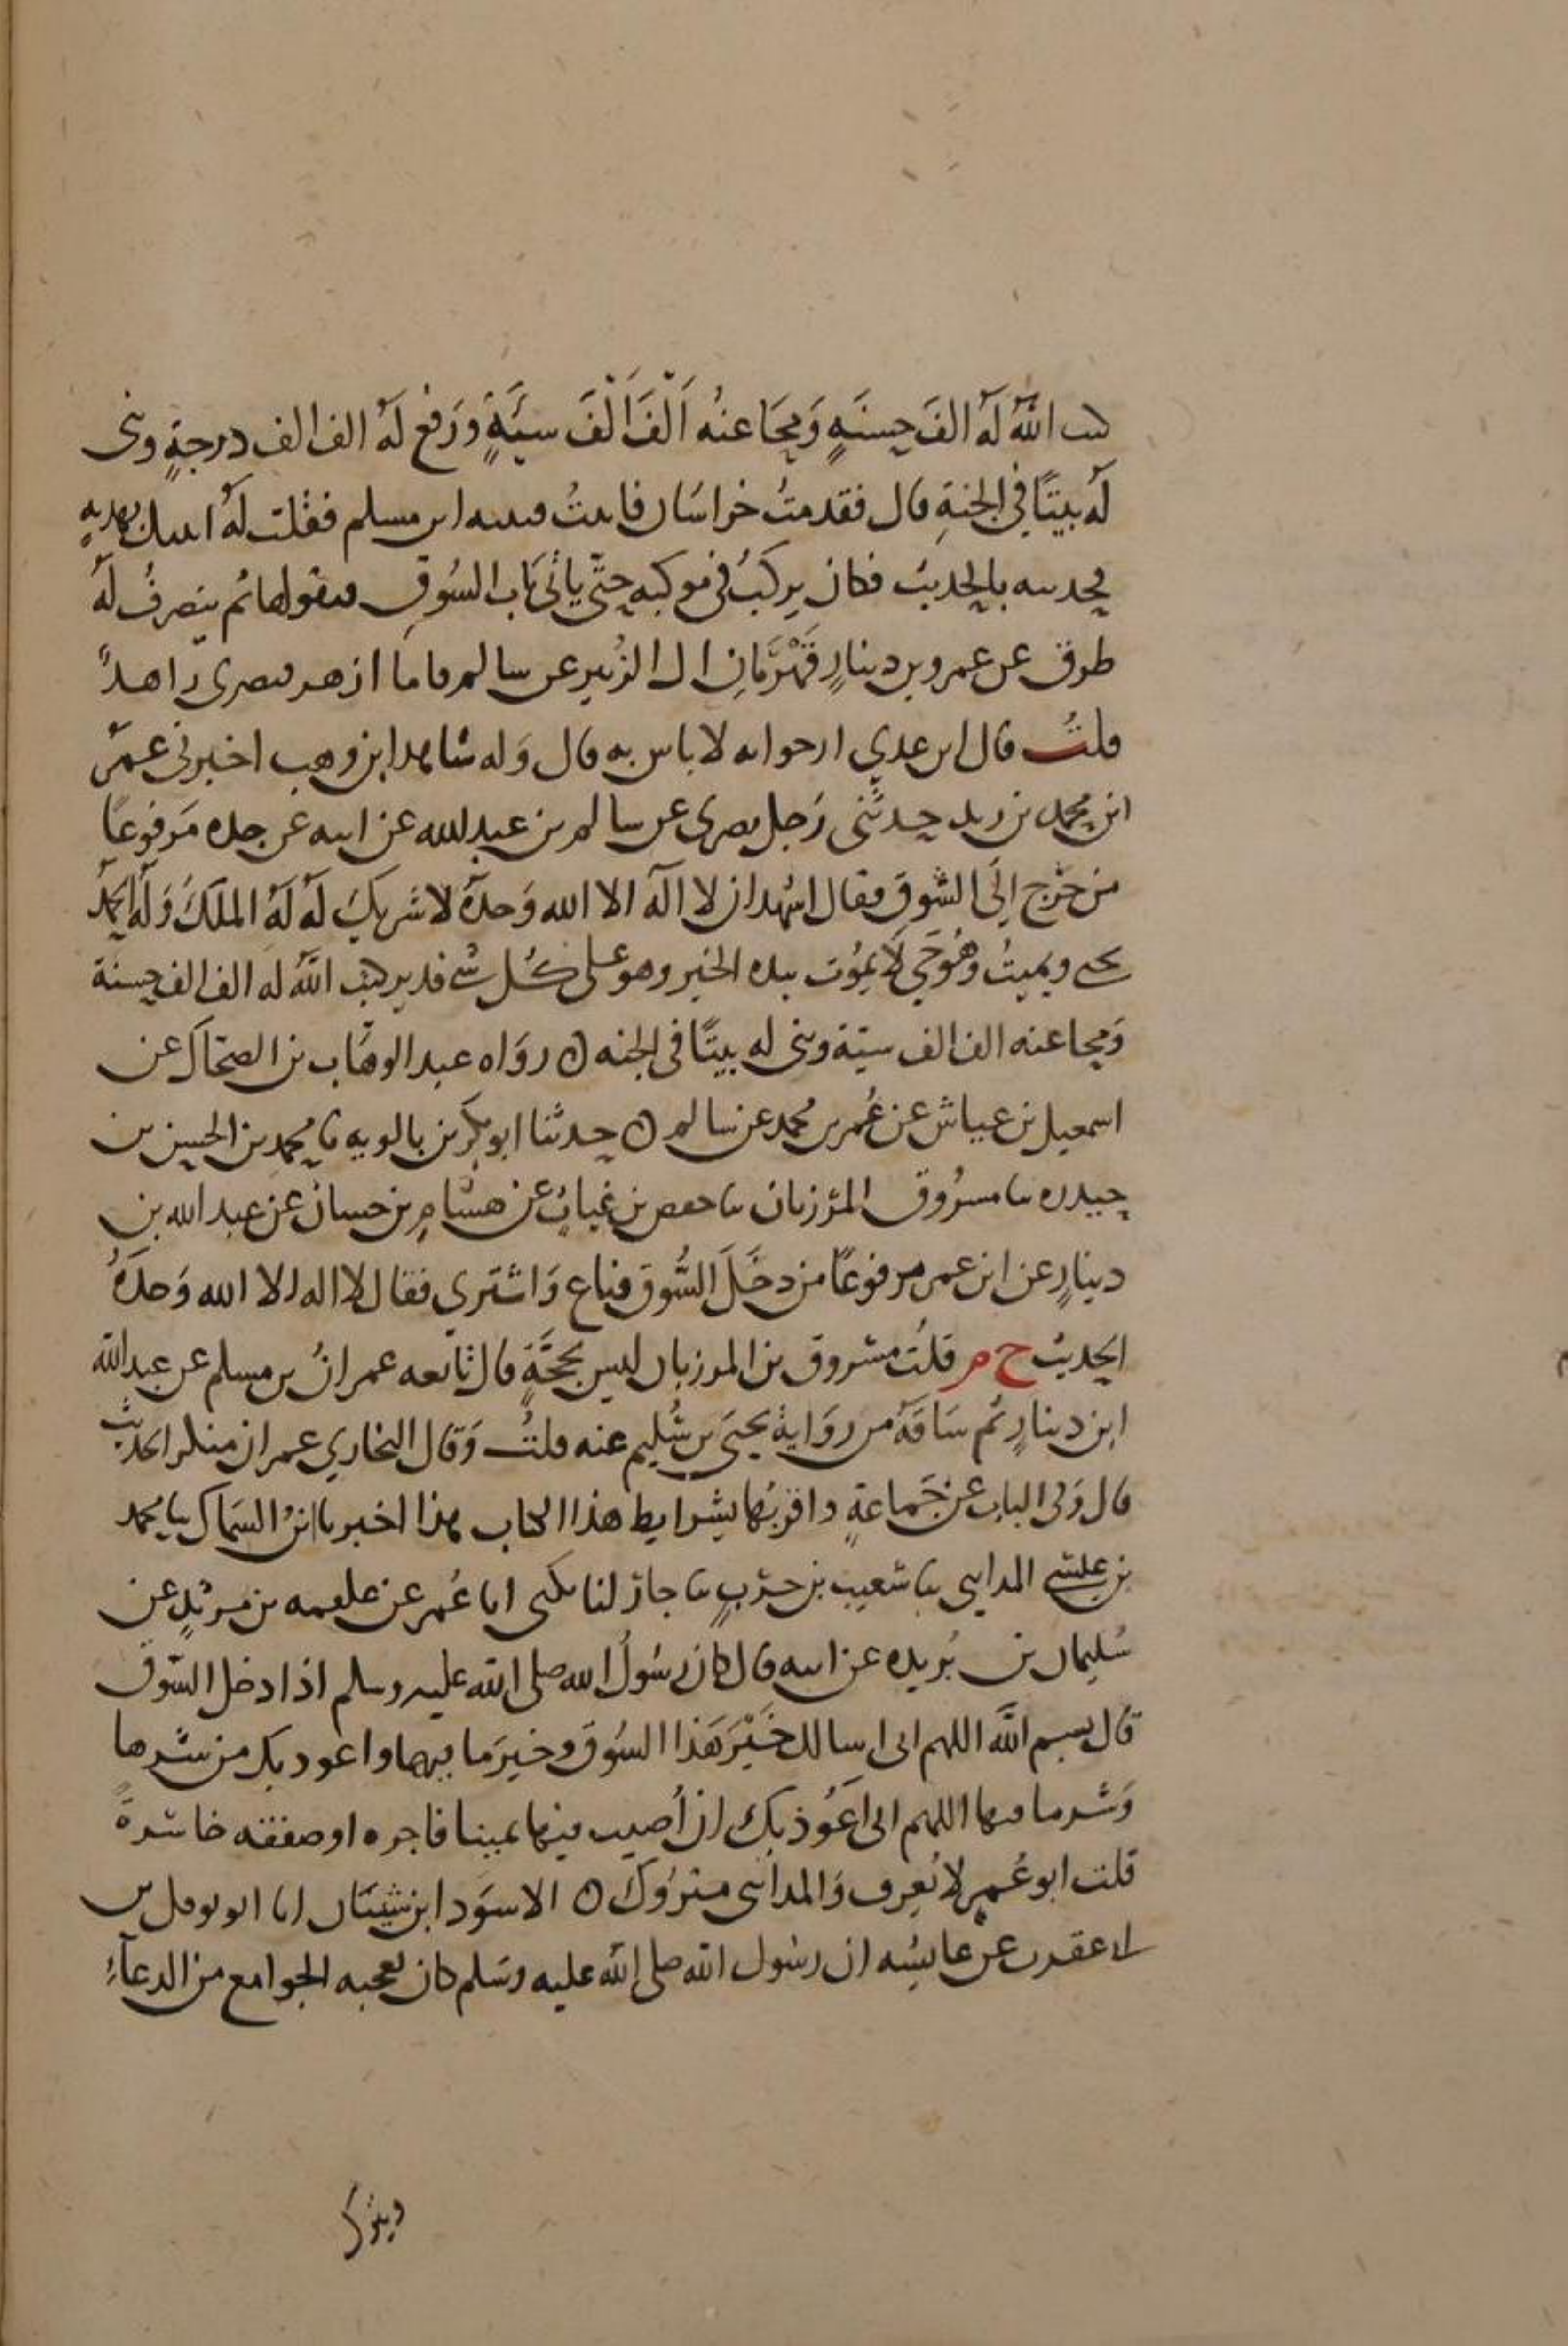 كتب الله له الف حسنةٍ ومحا عنه ألفَ ألْفَ سيئةٍ ورفع له الف الف درجةٍ وبنى
له بيتًا في الجنةِ قال فقدمتُ خراسان فاتيتُ قتيبه ابن مسلم فقلت له اتيتك بهديهٍ
فحدثته بالحديث فكان يركبُ في موكبه حتّى يأتي باب السُوقِ فيقولها ثم ينصرفُ له
طرق عن عمرو بن دينارٍ قَهْرَمانِ ال الزُبيرِ عن سالم فاما ازهر فبصري زاهدٌ
قلتُ قال ابن عدي ارجو انه لا باس به قال وَله شاهد ابن وهب اخبرني عمر
ابن محمد بن زيد حدثني رَجل بصرى عن سالم بن عبد الله عن ابيه عن جده مَرفوعًا
من خرج إلَى السُوقِ فقال اشهد ان لا اله الا الله وَحدهُ لا شريكَ لَه لَهُ الملكُ وَلهُ الحمدُ
يحيى ويميتُ وهُو حَي لَا يمُوت بيده الخير وهو على كُل شي قدير كتب اللهُ له الف الف حسنة
وَمحا عنه الف الف سيئة وبنى له بيتًا في الجنه ۞ رواه عبد الوهاب بن الضحاك عن
اسمعيل بن عياش عن عُمر بن محمد عن سالم ۞ حدثنا ابو بكر بن بالويه نا محمد بن الحسين بن
حبيده نا مسرُوق المرزبان نا حفص بن غياثٍ عن هشامٍ بن حسان عن عبد الله بن
دينارٍ عن ابن عمر مرفوعًا من دخَلَ السُّوق فباع وَاشترى فقال لا اله الا الله وَحدَهُ
الحديث ح م قلت مسروق بن المرزبان ليس بحجَّةٍ قال تابعه عمرانُ بن مسلم عن عبد الله
ابن دينارٍ ثم سَاقَهُ من روَاية يحيَى بن سُليم عنه قلتُ وَقال البخاري عمران منكر الحديث
قال وَفي الباب عن جَماعةٍ واقربُها بشرايط هذا الكتاب هذا اخبرنا ابنُ السَماك نا محمد
بن عيسى المدايني نا شعيب بن حرْبٍ نا جارٌ لنا يكنى ابا عُمر عن علقمه بن مرثدٍ عن
سُليمان بن بُريده عن ابيه قال كان رسُولُ الله صلى الله عليه وسلم اذا دخل السّوق
قال بسم اللَّه اللهم انى اسالك خَيْرَ هَذا السُوق وخيرَ ما فيها واعوذ بك من شرها
وَشر ما فيها اللهم انى أعُوذ بك ان أُصيب فيها يمينا فاجره او صفقه خاسرةً
قلت ابو عُمر لا يُعرف وَالمدايني متروك ۞ الاسوَد ابن شيبَان انا ابو نوفل بن
ابى عقرب عن عايشه ان رسُول الله صلى الله عليه وسَلم كان يعجبه الجوامع من الدعآءِ
ويترك